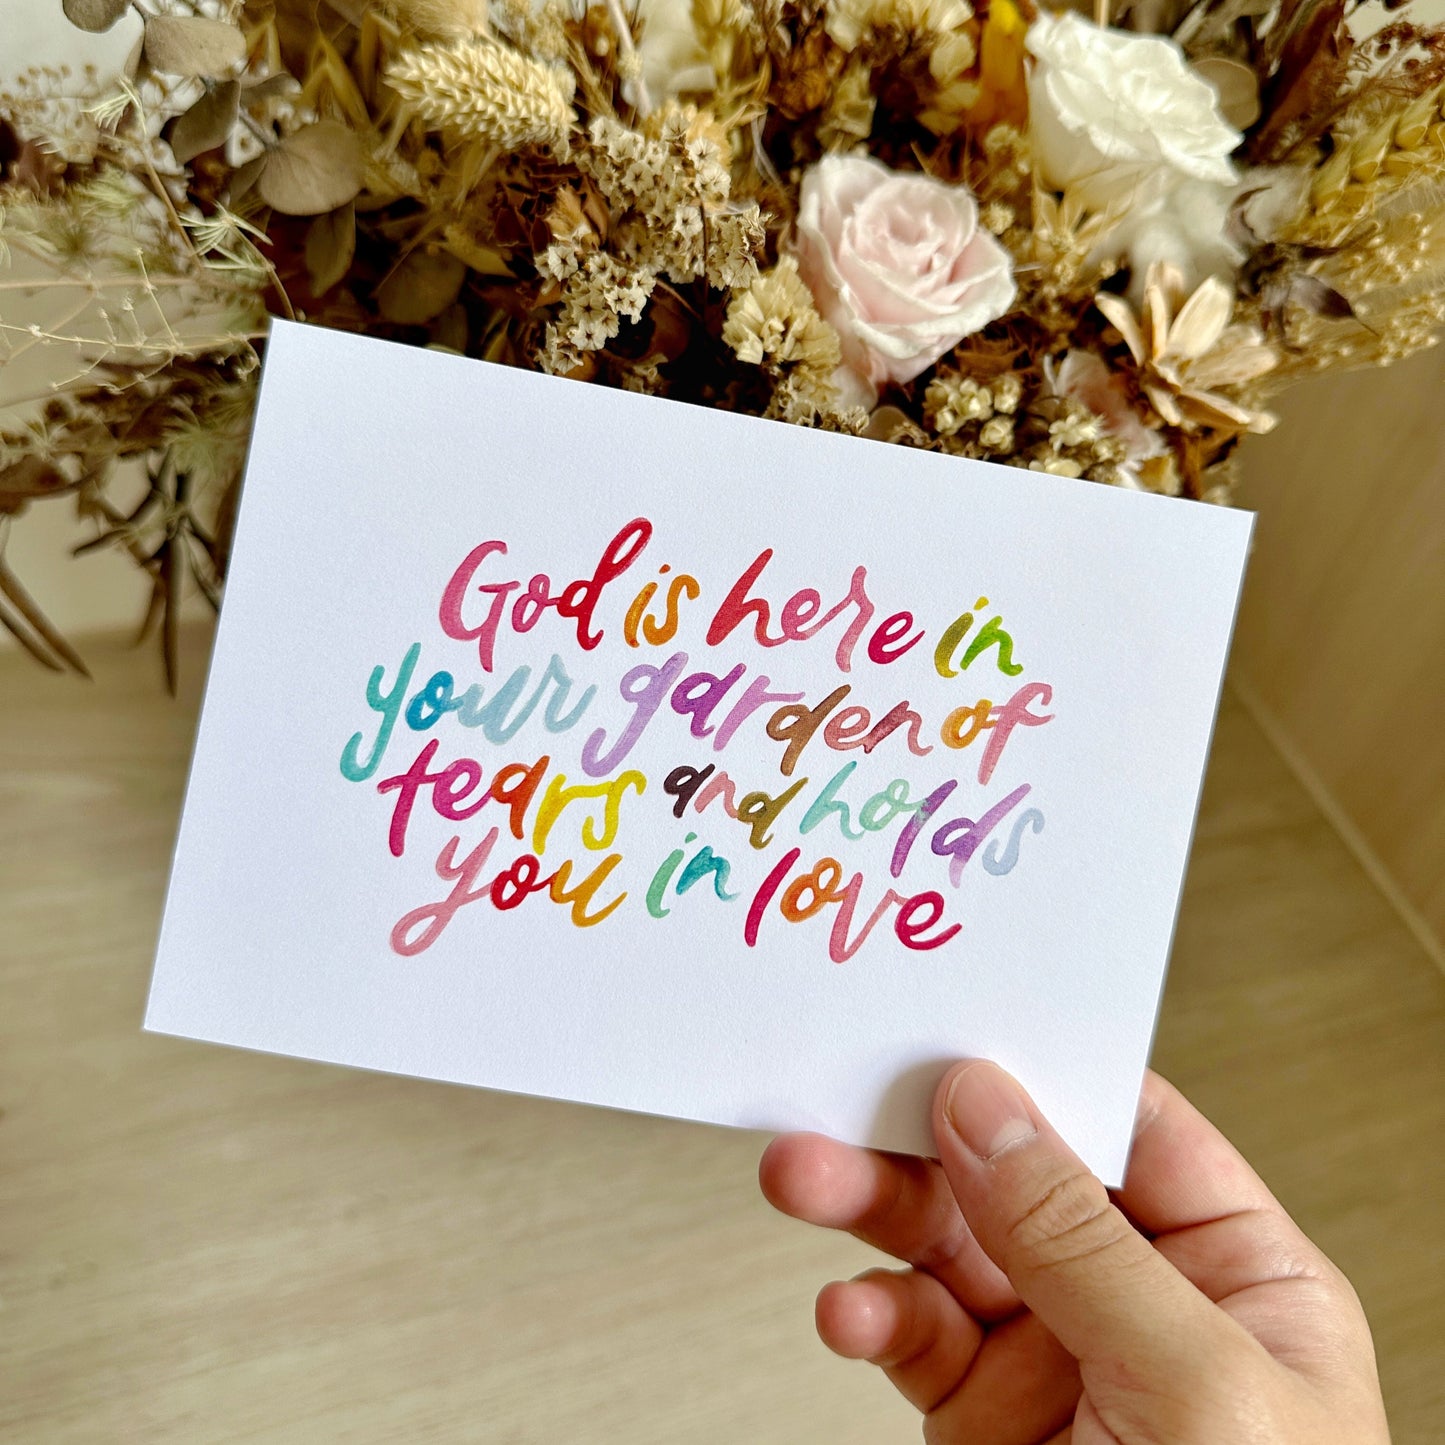 God is here in
your garden of
tears and holds
you in love